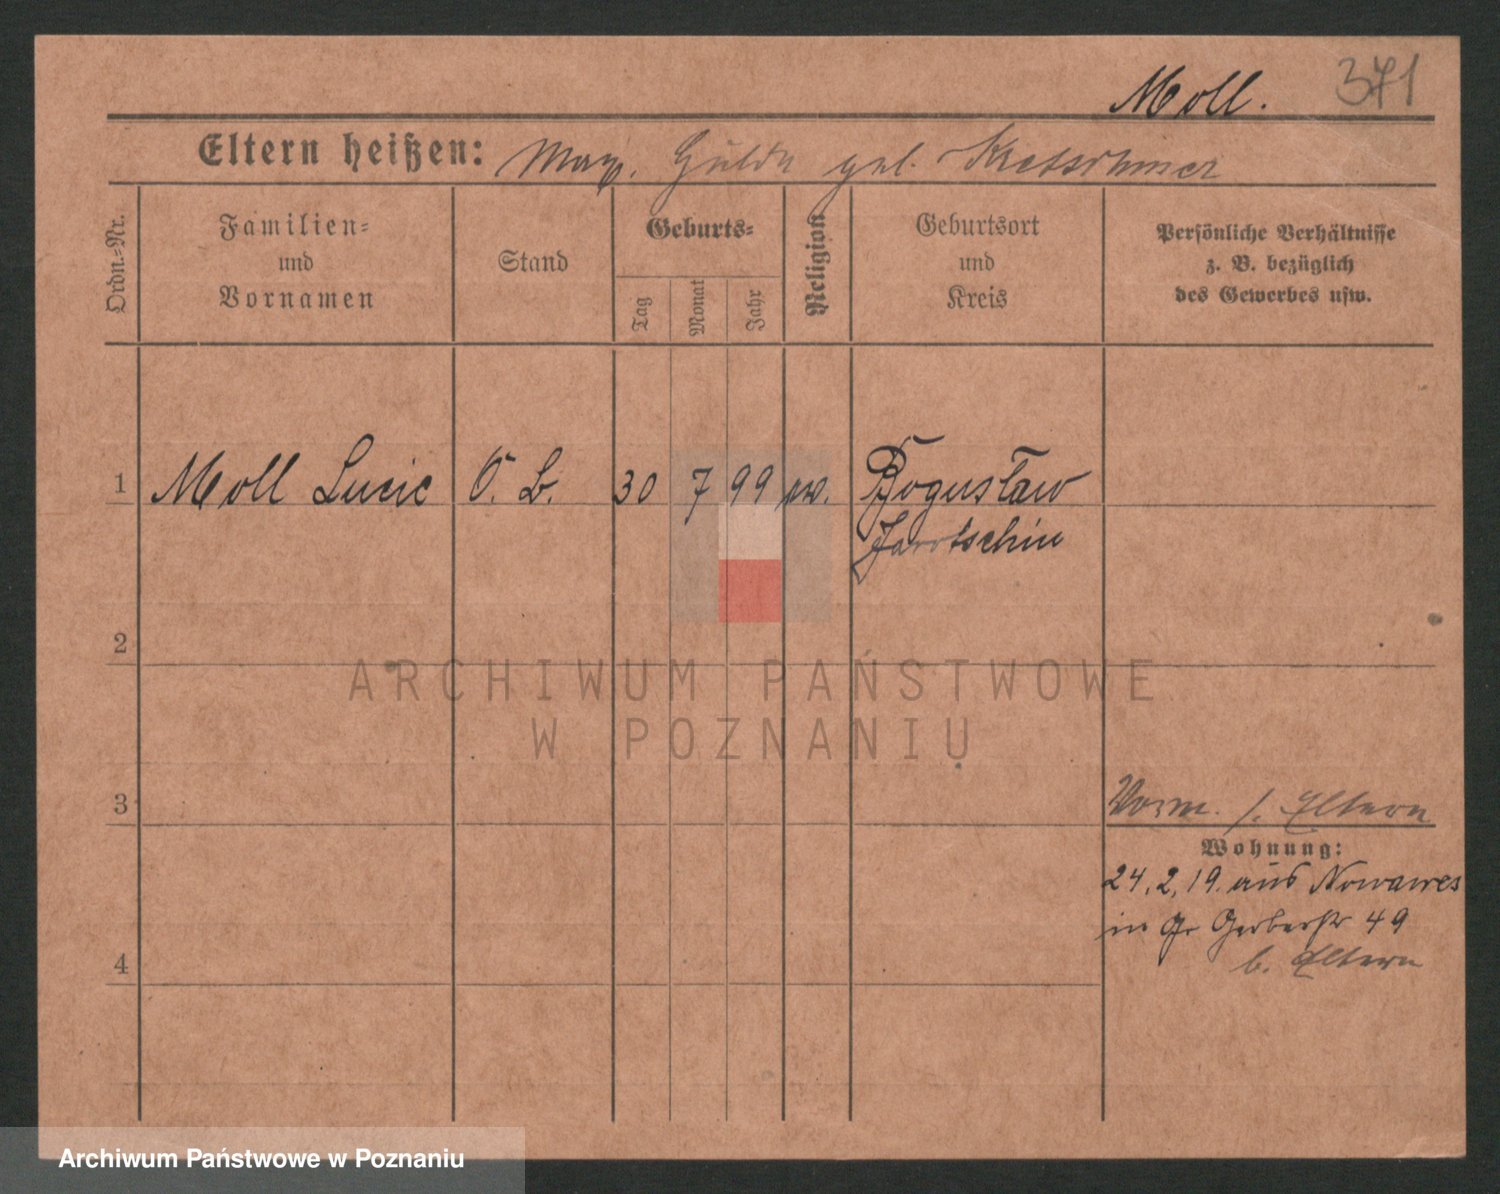 Moll. 371
Eltern heißen: Max. Hulda geb. Kretschmer
Ordn.=Nr.
Familien=
und
Vornamen
Stand
Geburts=
Tag
Monat
Jahr
Religion
Geburtsort
und
Kreis
Persönliche Verhältnisse
z. B. bezüglich
des Gewerbes usw.
1 Moll Lucie O. L. 30 7 99 ev. Bogusław
Jarotschin
2
ARCHIWUM PAŃSTWOWE
W POZNANIU
3
Vorm. s. Eltern
Wohnung:
24.2.19. aus Nowawes
in Gr Gerberstr 49
b. Eltern
4
Archiwum Państwowe w Poznaniu